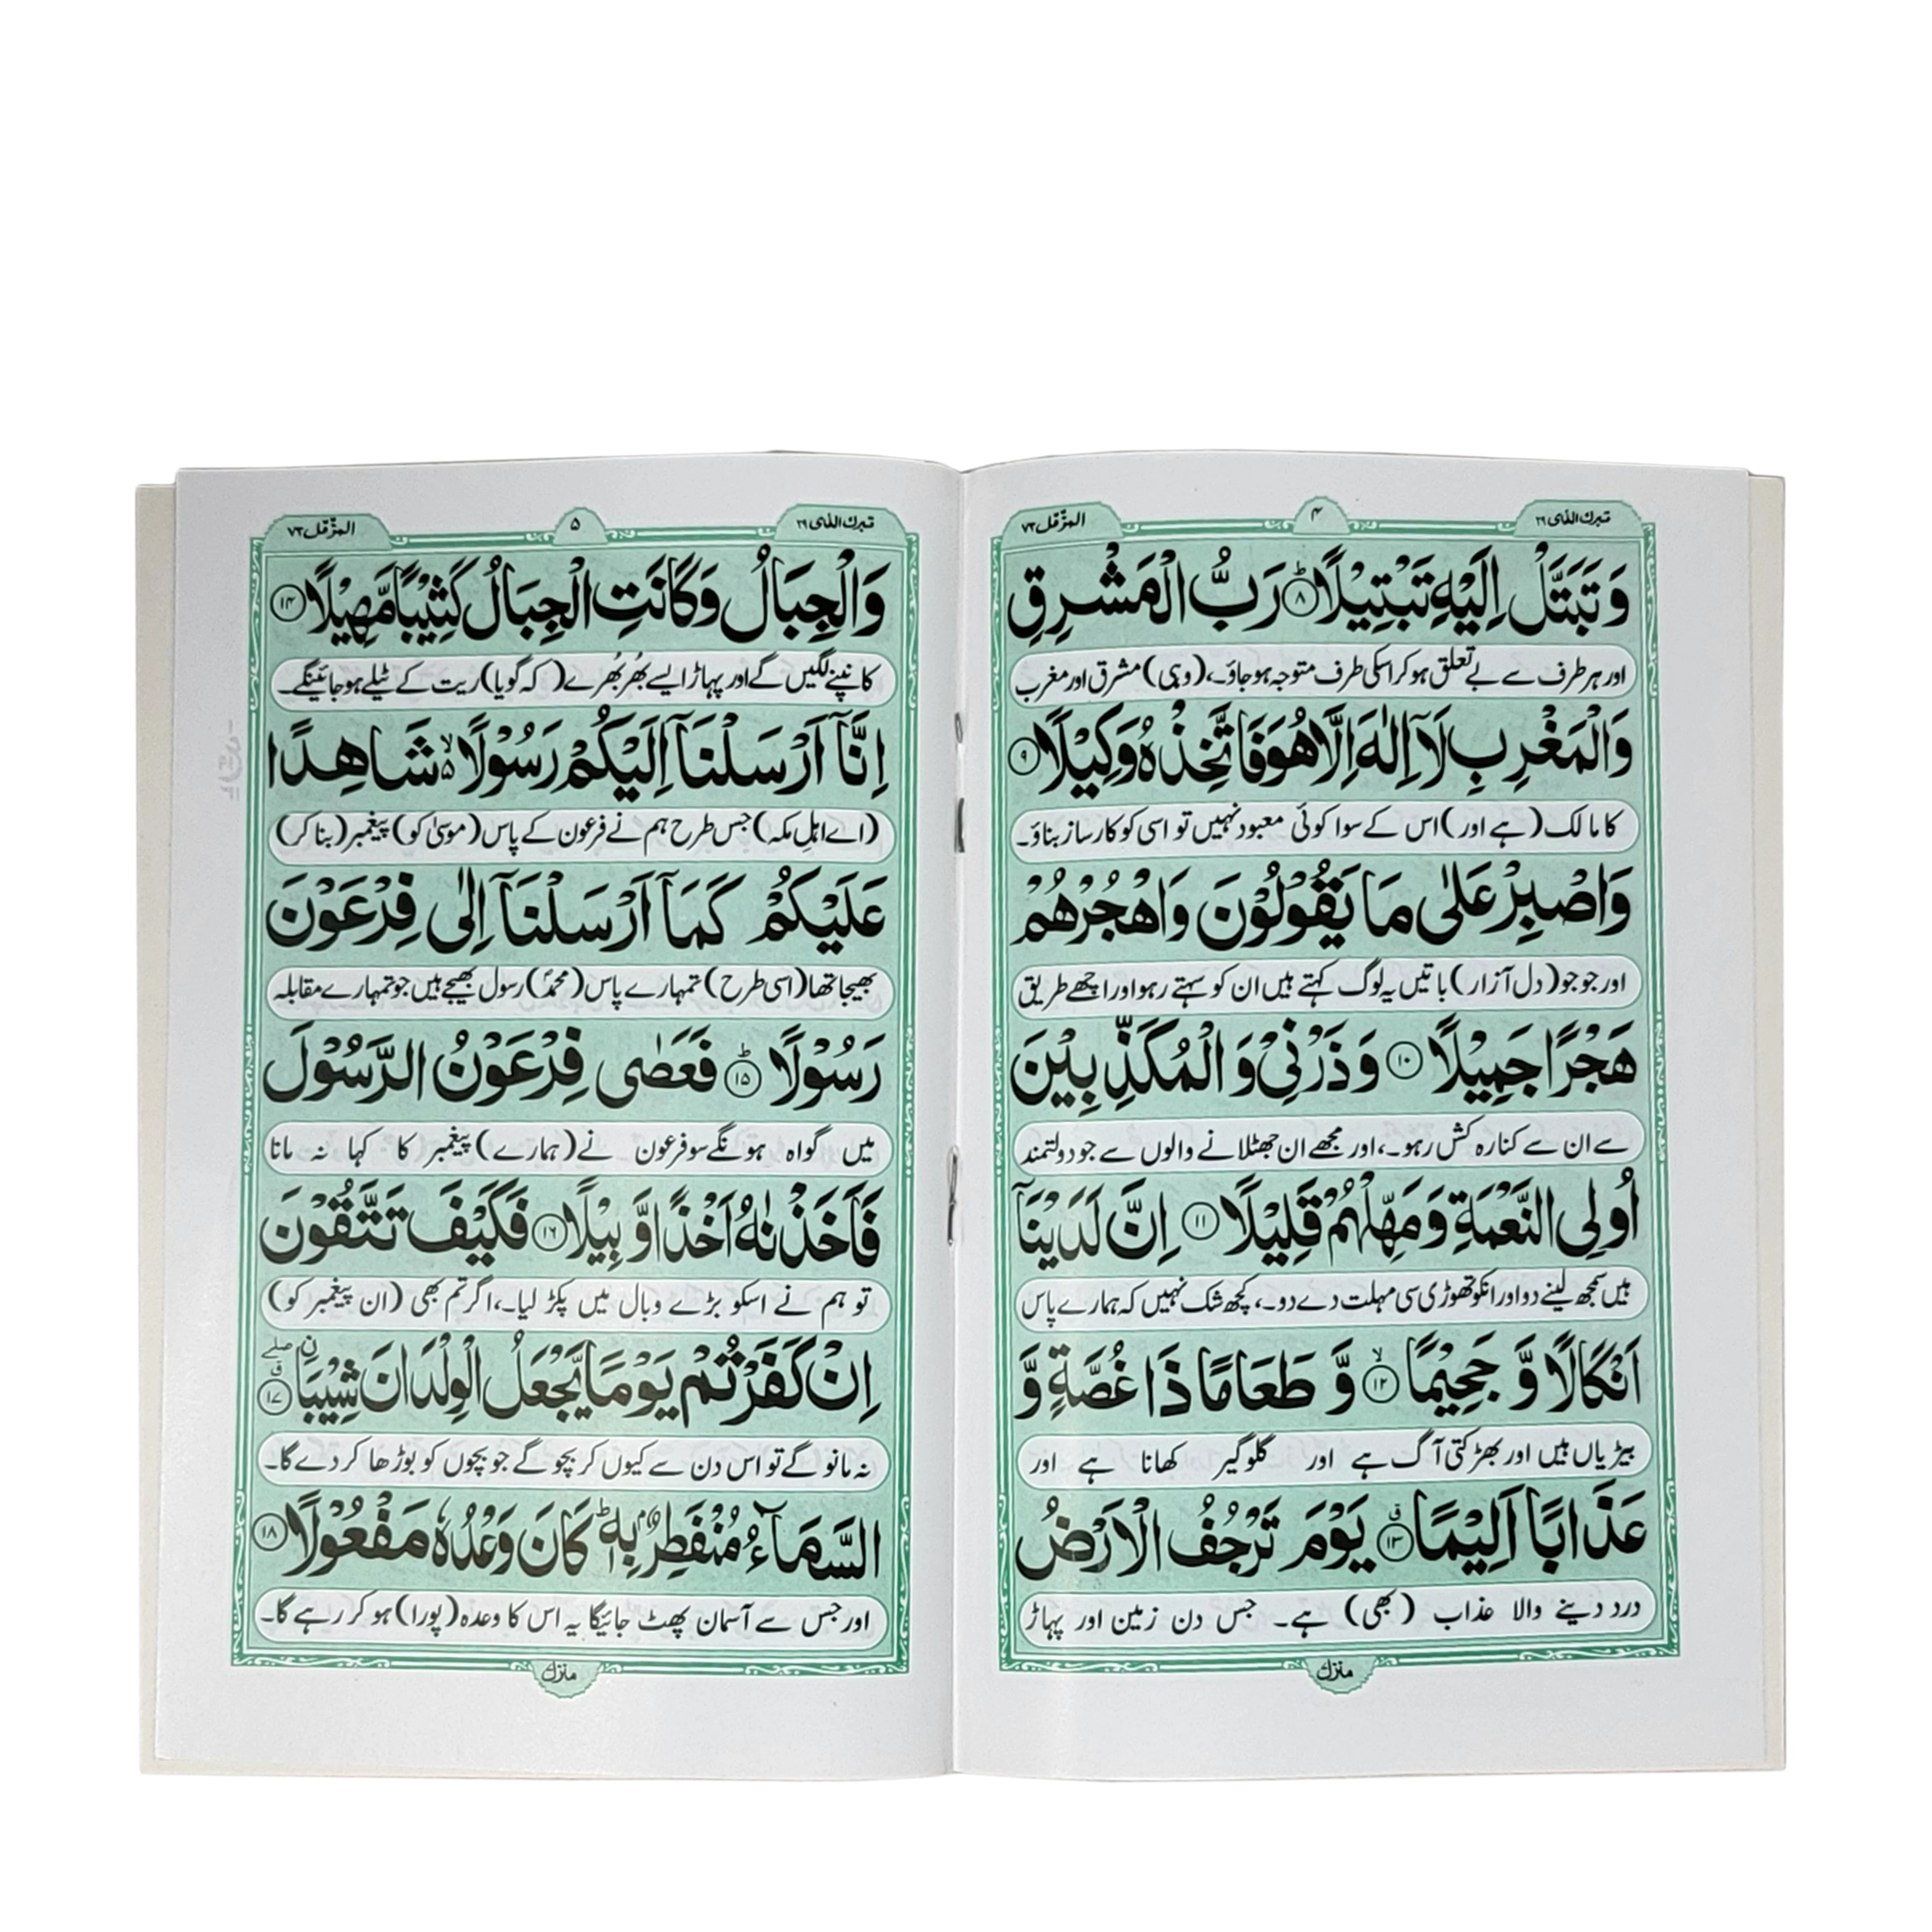 تبرك الذى ٢٩
۴
المزمل ٧٣
وَتَبَتَّلْ اِلَيْهِ تَبْتِيْلًا ؕ ۸ رَبُّ الْمَشْرِقِ
اور ہر طرف سے بے تعلق ہو کر اسکی طرف متوجہ ہو جاؤ۔، (وہی) مشرق اور مغرب
وَالْمَغْرِبِ لَاۤ اِلٰهَ اِلَّا هُوَ فَاتَّخِذْهُ وَكِيْلًا ۹
کا مالک (ہے اور) اس کے سوا کوئی معبود نہیں تو اسی کو کارساز بناؤ۔
وَاصْبِرْ عَلٰى مَا يَقُوْلُوْنَ وَاهْجُرْهُمْ
اور جو جو (دل آزار) باتیں یہ لوگ کہتے ہیں ان کو سہتے رہو اور اچھے طریق
هَجْرًا جَمِيْلًا ۱۰ وَذَرْنِيْ وَالْمُكَذِّبِيْنَ
سے ان سے کنارہ کش رہو۔، اور مجھے ان جھٹلانے والوں سے جو دولتمند
اُولِى النَّعْمَةِ وَمَهِّلْهُمْ قَلِيْلًا ۱۱ اِنَّ لَدَيْنَاۤ
ہیں سمجھ لینے دو اور انکو تھوڑی سی مہلت دے دو۔، کچھ شک نہیں کہ ہمارے پاس
اَنْكَالًا وَّ جَحِيْمًا ۙ ۱۲ وَّ طَعَامًا ذَا غُصَّةٍ وَّ
بیڑیاں ہیں اور بھڑکتی آگ ہے اور گلوگیر کھانا ہے اور
عَذَابًا اَلِيْمًا ۱۳ يَوْمَ تَرْجُفُ الْاَرْضُ
درد دینے والا عذاب (بھی) ہے۔ جس دن زمین اور پہاڑ
منزل
تبرك الذى ٢٩
۵
المزمل ٧٣
وَالْجِبَالُ وَكَانَتِ الْجِبَالُ كَثِيْبًا مَّهِيْلًا ۱۴
کانپنے لگیں گے اور پہاڑ ایسے بھُر بھُرے (کہ گویا) ریت کے ٹیلے ہو جائینگے۔
اِنَّاۤ اَرْسَلْنَاۤ اِلَيْكُمْ رَسُوْلًا ۙ۬ شَاهِدًا
(اے اہلِ مکہ) جس طرح ہم نے فرعون کے پاس (موسیٰ کو) پیغمبر (بنا کر)
عَلَيْكُمْ كَمَاۤ اَرْسَلْنَاۤ اِلٰى فِرْعَوْنَ
بھیجا تھا (اسی طرح) تمہارے پاس (محمدؐ) رسول بھیجے ہیں جو تمہارے مقابلہ
رَسُوْلًا ؕ ۱۵ فَعَصٰى فِرْعَوْنُ الرَّسُوْلَ
میں گواہ ہونگے سو فرعون نے (ہمارے) پیغمبر کا کہا نہ مانا
فَاَخَذْنٰهُ اَخْذًا وَّبِيْلًا ۱۶ فَكَيْفَ تَتَّقُوْنَ
تو ہم نے اسکو بڑے وبال میں پکڑ لیا۔، اگر تم بھی (ان پیغمبر کو)
اِنْ كَفَرْتُمْ يَوْمًا يَّجْعَلُ الْوِلْدَانَ شِيْبَا ۱۷
نہ مانو گے تو اس دن سے کیوں کر بچو گے جو بچوں کو بوڑھا کر دے گا۔
السَّمَآءُ مُنْفَطِرٌۢ بِهٖ ؕ كَانَ وَعْدُهٗ مَفْعُوْلًا ۱۸
اور جس سے آسمان پھٹ جائیگا یہ اس کا وعدہ (پورا) ہو کر رہے گا۔
منزل